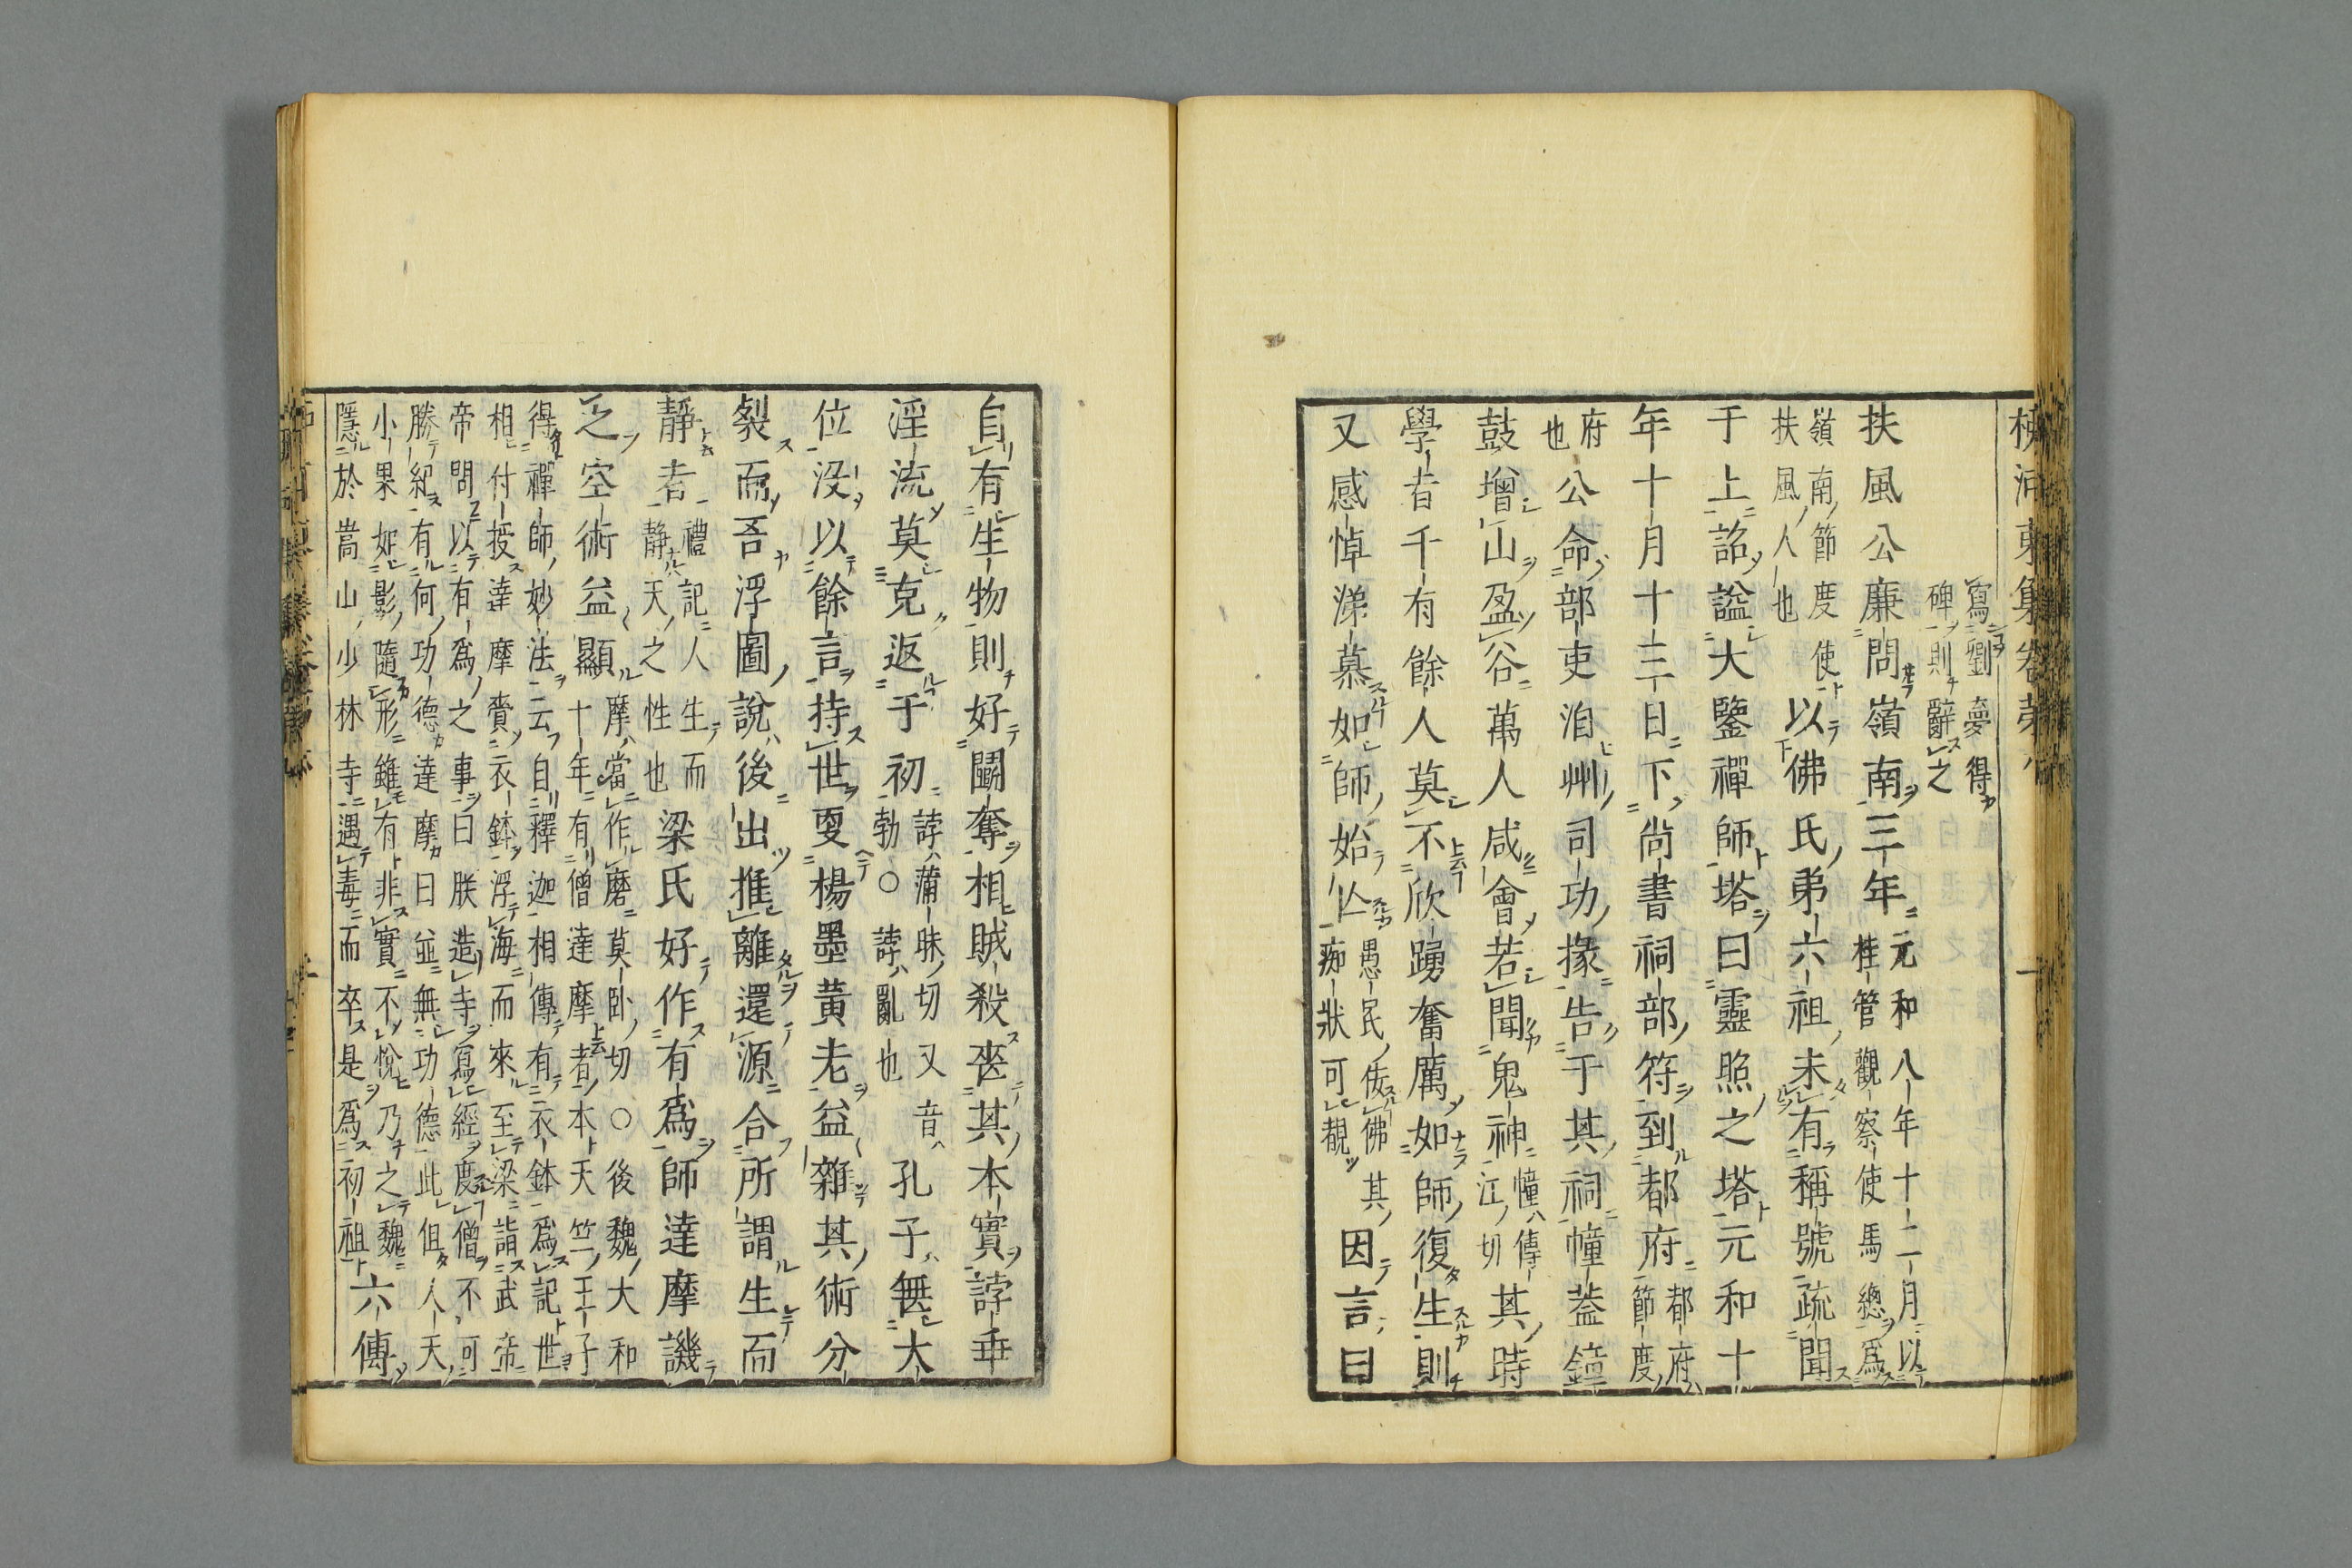 寫劉夢得
碑則辭之
扶風公廉問嶺南三年元和八年十二月以
桂管觀察使馬總爲
嶺南節度使
扶風人也以佛氏第六祖未有稱號疏聞
于上詔謚大鑒禪師塔曰靈照之塔元和十
年十月十三日下尚書祠部符到都府都府
節度
府
也公命部吏洎州司功掾告于其祠幢蓋鐘
鼓增山盈谷萬人咸會若聞鬼神幢傳
江切其時
學者千有餘人莫不欣踴奮厲如師復生則
又感悼涕慕如師始亡愚民佞佛其
痴狀可覩因言曰
自有生物則好鬬奪相賊殺喪其本實誖垂
淫流莫克返于初誖蒲昧切又音
勃○誖亂也孔子無大
位沒以餘言持世更楊墨黃老益雜其術分
裂而吾浮圖說後出推離還源合所謂生而
靜者禮記人生而
靜天之性也梁氏好作有爲師達摩譏
之空術益顯摩當作磨莫臥切○後魏大和
十年有僧達摩者本天竺王子
得禪師妙法云自釋迦相傳有衣鉢爲記世
相付授達摩賫衣鉢浮海而來至梁詣武帝
帝問以有爲之事曰朕造寺寫經度僧不可
勝紀有何功德達摩曰並無功德此但人天
小果如影隨形雖有非實不悅乃之魏
隱於嵩山少林寺遇毒而卒是爲初祖六傳